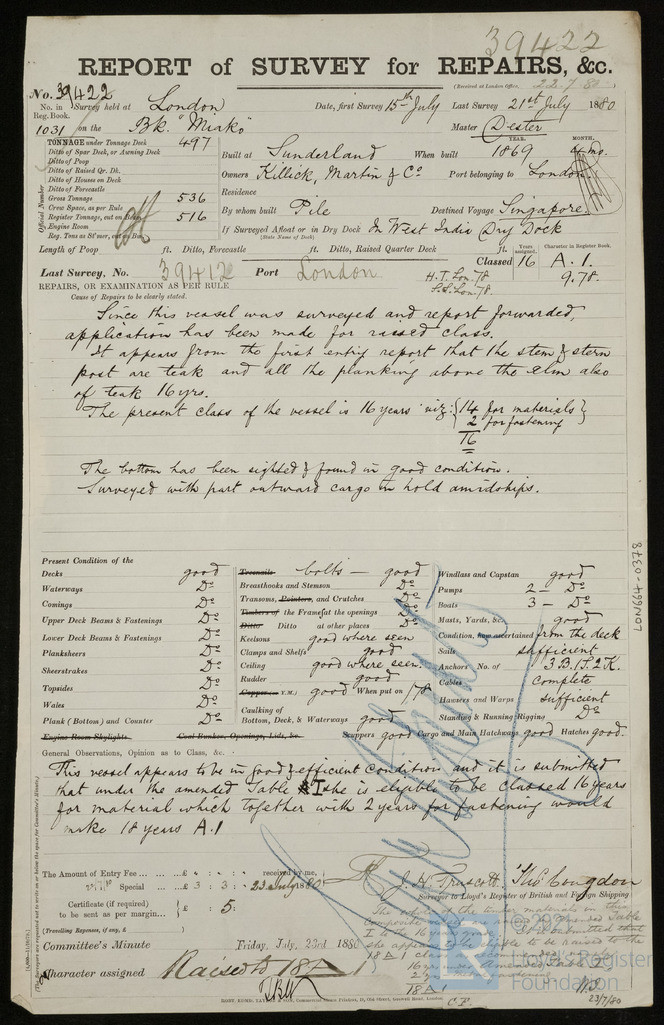 39422
REPORT of SURVEY for REPAIRS, &c.
(Received at London Office, 22.7.80)
No. 39422
No. in Survey held at London Date, first Survey 15th July Last Survey 21st July 1880
Reg. Book.
1031 on the Bk. "Miako" Master Dester
TONNAGE under Tonnage Deck 497
Ditto of Spar Deck, or Awning Deck
Ditto of Poop
Ditto of Raised Qr. Dk.
Ditto of Houses on Deck
Ditto of Forecastle
Gross Tonnage 536
Crew Space, as per Rule
Register Tonnage, cut on Beam 516
Engine Room
Reg. Tons as St'mer, cut on Beam
Official Number
YEAR. MONTH.
Built at Sunderland When built 1869 4 mo.
Owners Killick, Martin & Co Port belonging to London
Residence
By whom built Pile Destined Voyage Singapore.
If Surveyed Afloat or in Dry Dock In West India Dry Dock
(State Name of Dock)
Length of Poop ft. Ditto, Forecastle ft. Ditto, Raised Quarter Deck ft.
Years assigned. Character in Register Book.
Classed 16 A.1.
9.78.
Last Survey, No. 39412 Port London
H.T. Lon. 78
S.S. Lon. 78.
REPAIRS, OR EXAMINATION AS PER RULE
Cause of Repairs to be clearly stated.
Since this vessel was surveyed and report forwarded,
application has been made for raised class.
It appears from the first entry report that the stem & stern
post are teak and all the planking above the elm also
of teak 16 yrs.
The present class of the vessel is 16 years viz: {14 for materials}
2 for fastening
16
The bottom has been sighted & found in good condition.
Surveyed with part outward cargo in hold amidships.
Present Condition of the
Decks good
Waterways Do
Comings Do
Upper Deck Beams & Fastenings Do
Lower Deck Beams & Fastenings Do
Planksheers Do
Sheerstrakes Do
Topsides Do
Wales Do
Plank (Bottom) and Counter Do
Engine Room Skylights. Coal Bunker, Openings, Lids, &c.
Treenails bolts — good
Breasthooks and Stemson Do
Transoms, Pointers, and Crutches Do
Timbers of the Frames at the openings Do
Ditto Ditto at other places Do
Keelsons good where seen
Clamps and Shelfs good
Ceiling good where seen.
Rudder good
Copper (or Y.M.) good When put on /78
Caulking of
Bottom, Deck, & Waterways good
Scuppers good Cargo and Main Hatchways good Hatches good.
Windlass and Capstan good
Pumps 2 — Do
Boats 3 — Do
Masts, Yards, &c. good
Condition, how ascertained from the deck
Sails sufficient
Anchors No. of 3 B. 1 S. 2 K.
Cables complete
Hawsers and Warps sufficient
Standing & Running Rigging Do
General Observations, Opinion as to Class, &c.
This vessel appears to be in good & efficient condition and it is submitted
that under the amended Table I she is eligible to be classed 16 years
for material which together with 2 years for fastening would
make 18 years A.1
The Amount of Entry Fee ... £ : : received by me,
Special ... £ 3 : 3 : 23 July 1880
Certificate (if required)
to be sent as per margin... £ 5:
(Travelling Expenses, if any, £ )
J. H. Truscott. Thos Congdon
Surveyor to Lloyd's Register of British and Foreign Shipping
Committee's Minute Friday, July, 23rd 1880
Character assigned Raised to 18 A 1
18 A 1
23/7/80
LON664-0378
Lloyd's Register
Foundation